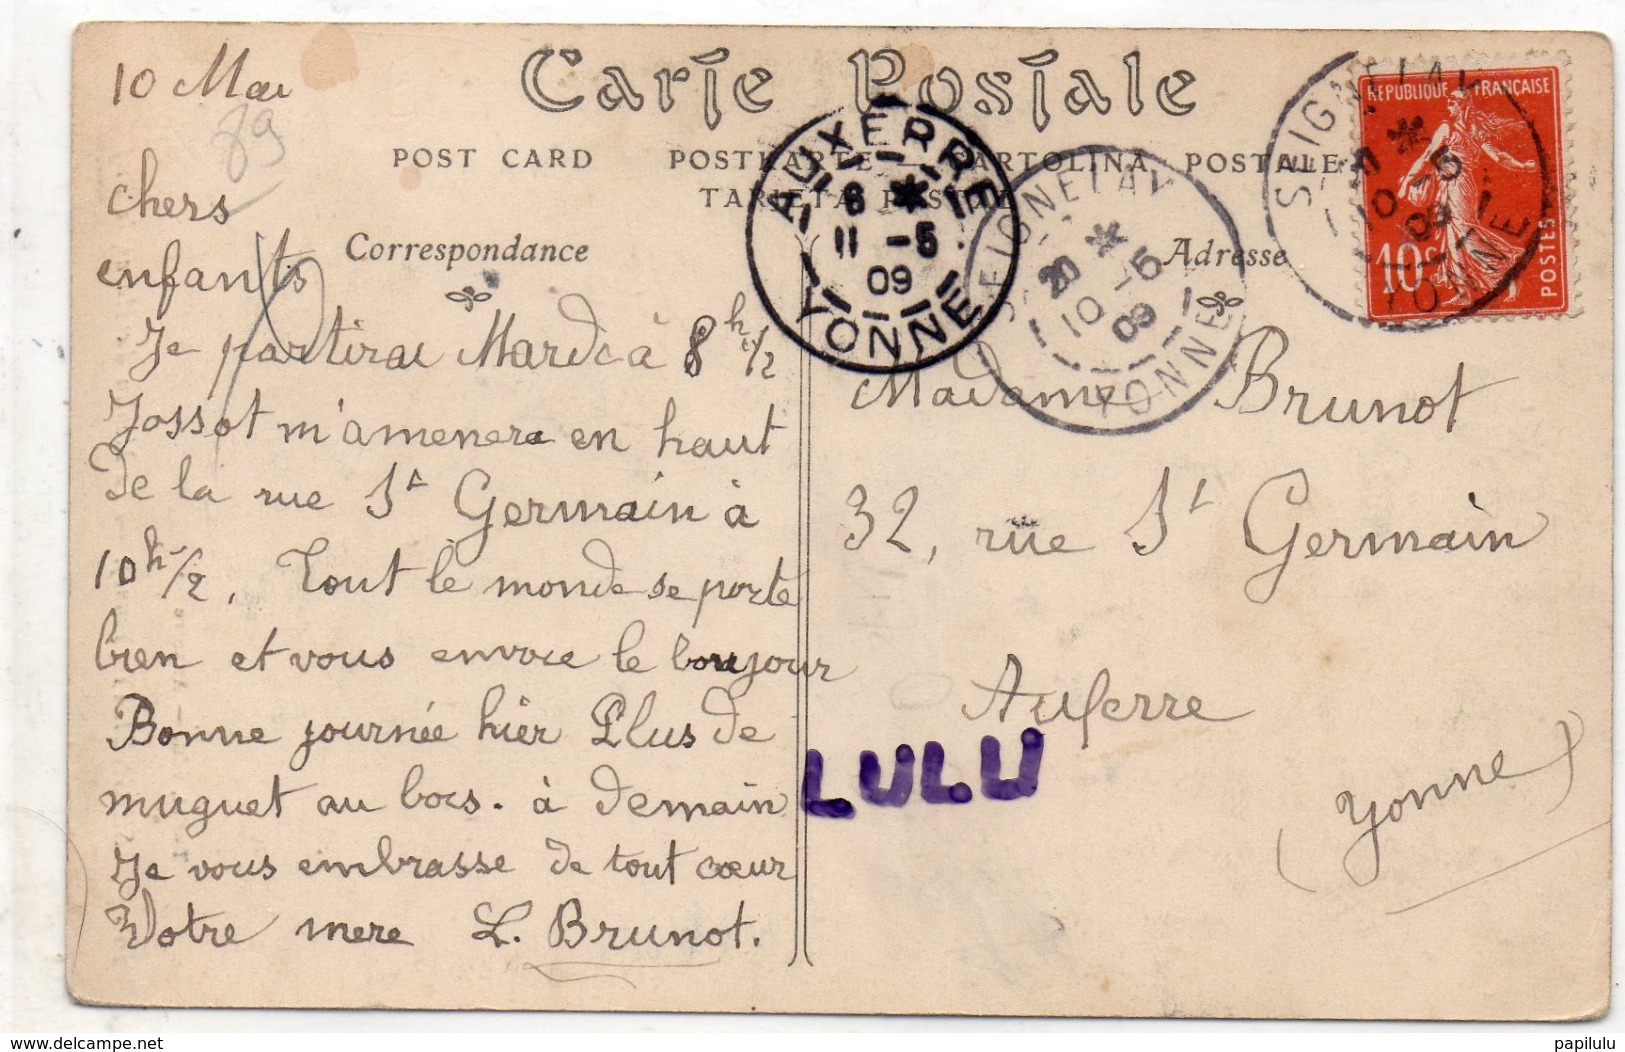 Carte Postale
POST CARD POSTKARTE CARTOLINA POSTALE
TARJETA POSTAL
Correspondance
Adresse
10 Mai
89
chers
enfants
Je partirai Mardi à 8h 1/2
Jossot m'amenera en haut
de la rue St Germain à
10h 1/2. Tout le monde se porte
bien et vous envoie le bonjour
Bonne journée hier Plus de
muguet au bois. à demain
Je vous embrasse de tout cœur
Votre mere L. Brunot.
Madame Brunot
32, rue St Germain
Auxerre
(Yonne)
LULU
AUXERRE
6 *
11 -5
09
YONNE
SEIGNELAY
*
10 -5
09
YONNE
SEIGNELAY
*
10 -5
09
YONNE
REPUBLIQUE FRANÇAISE
10c
POSTES
www.delcampe.net
papilulu